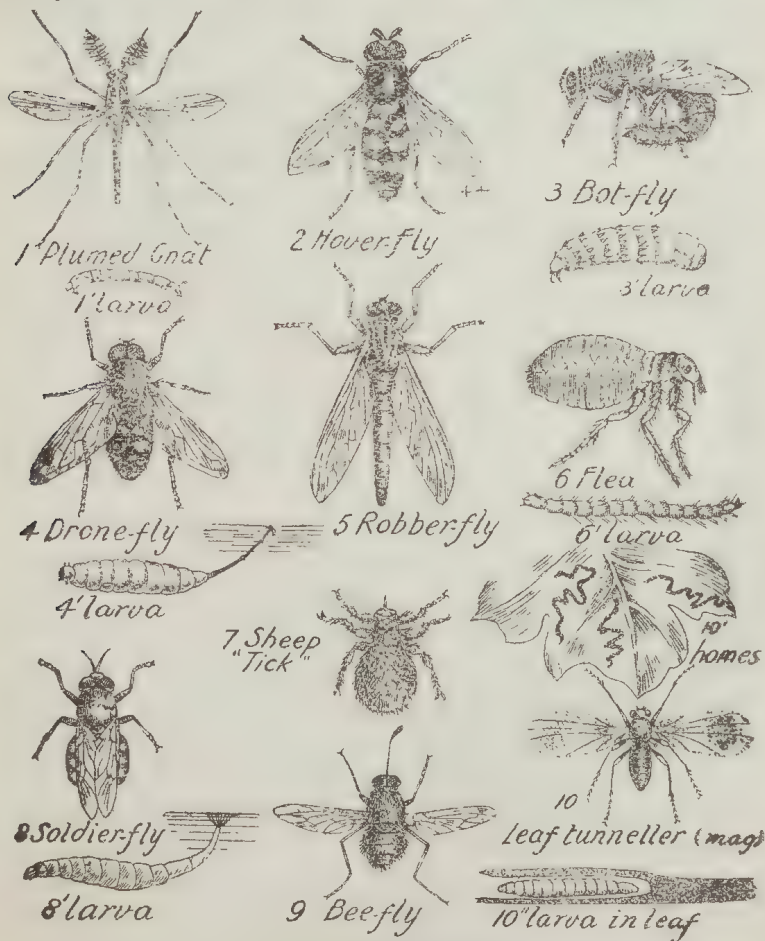 1 Plumed Gnat
1' larva
2 Hover-fly
3 Bot-fly
3' larva
4 Drone-fly
4' larva
5 Robber-fly
6 Flea
6' larva
7 Sheep
"Tick"
10'
homes
8 Soldier-fly
8' larva
9 Bee-fly
10
Leaf tunneller (mag)
10" larva in leaf